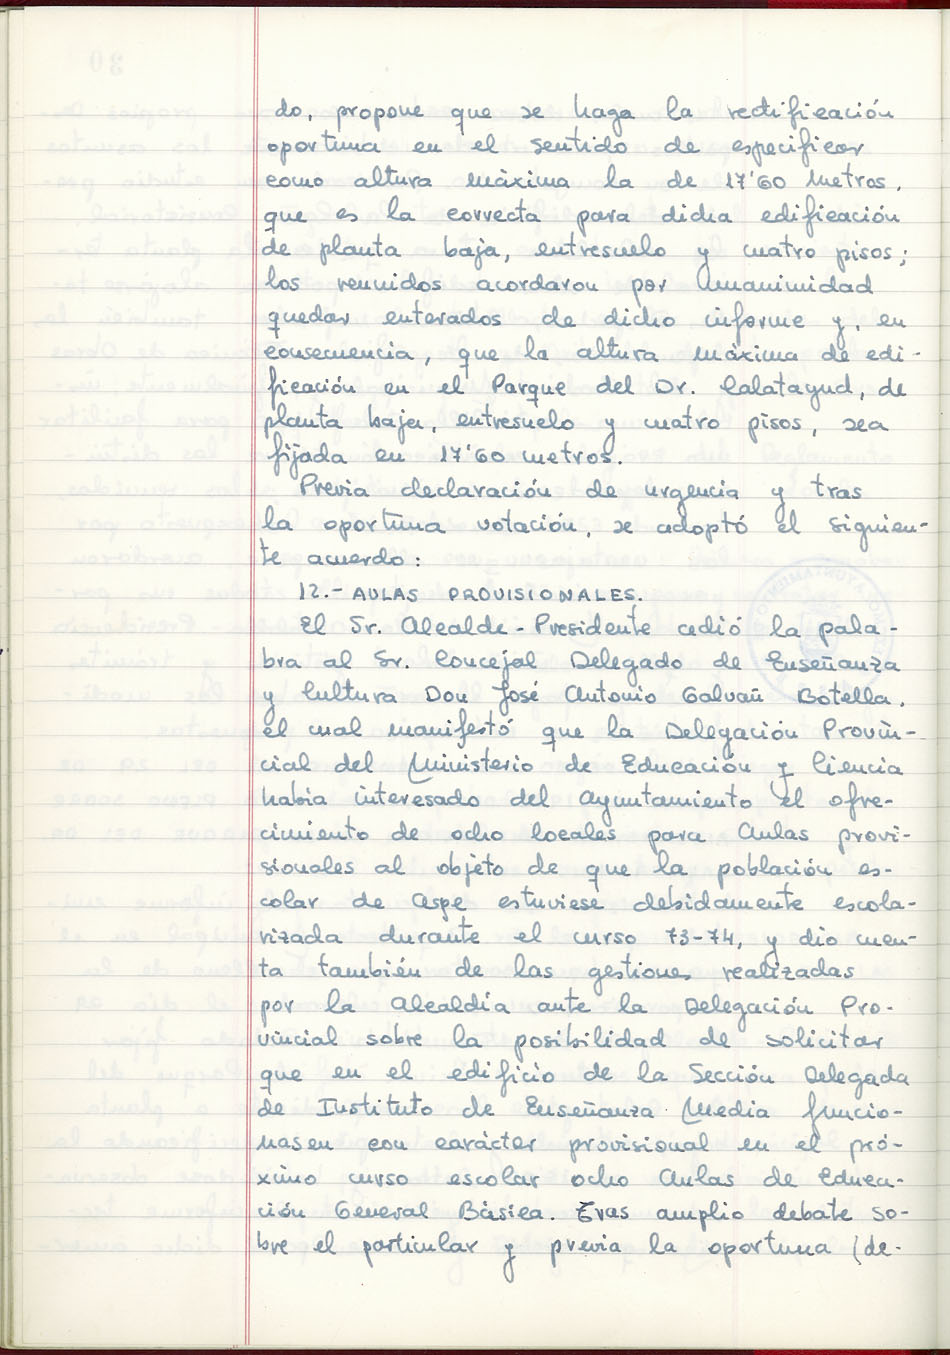 do, propone que se haga la rectificación
oportuna en el sentido de especificar
como altura máxima la de 17'60 metros,
que es la correcta para dicha edificación
de planta baja, entresuelo y cuatro pisos;
los reunidos acordaron por unanimidad
quedar enterados de dicho informe y, en
consecuencia, que la altura máxima de edi-
ficación en el Parque del Dr. Calatayud, de
planta baja, entresuelo y cuatro pisos, sea
fijada en 17'60 metros.
Previa declaración de urgencia y tras
la oportuna votación, se adoptó el siguien-
te acuerdo:
12.- AULAS PROVISIONALES.
El Sr. Alcalde-Presidente cedió la pala-
bra al Sr. Concejal Delegado de Enseñanza
y Cultura Don José Antonio Galvañ Botella,
el cual manifestó que la Delegación Provin-
cial del Ministerio de Educación y Ciencia
había interesado del Ayuntamiento el ofre-
cimiento de ocho locales para Aulas provi-
sionales al objeto de que la población es-
colar de Aspe estuviese debidamente escola-
rizada durante el curso 73-74, y dio cuen-
ta también de las gestiones realizadas
por la Alcaldía ante la Delegación Pro-
vincial sobre la posibilidad de solicitar
que en el edificio de la Sección Delegada
de Instituto de Enseñanza Media funcio-
nasen con carácter provisional en el pró-
ximo curso escolar ocho Aulas de Educa-
ción General Básica. Tras amplio debate so-
bre el particular y previa la oportuna (de-